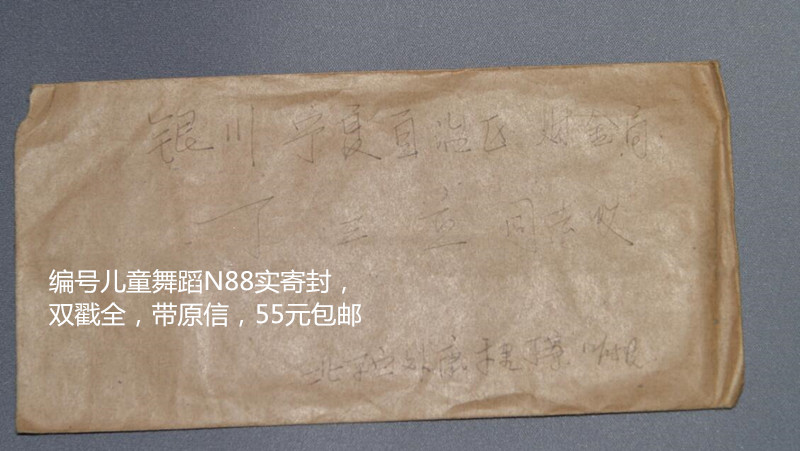 银川宁夏自治区财金局
丁兰 同志收
编号儿童舞蹈N88实寄封，
双戳全，带原信，55元包邮
北